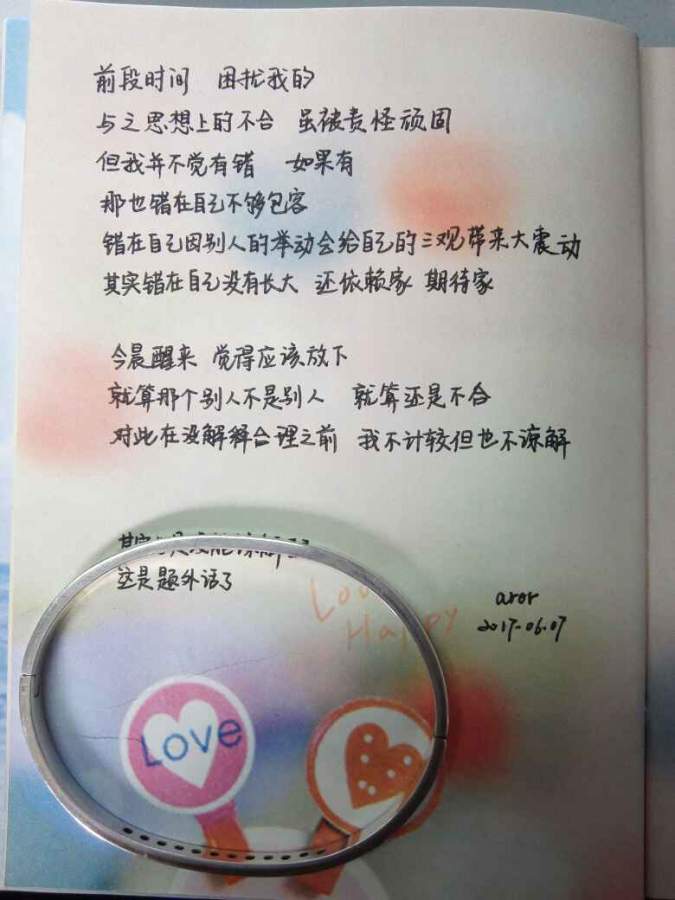 前段时间 困扰我的
与之思想上的不合 虽被责怪顽固
但我并不觉有错 如果有
那也错在自己不够包容
错在自己因别人的举动会给自己的三观带来大震动
其实错在自己没有长大 还依赖家 期待家
今晨醒来 觉得应该放下
就算那个别人不是别人 就算还是不合
对此在没解释合理之前 我不计较但也不谅解
其实
这是题外话了
aror
2017.06.07
Happy
Love